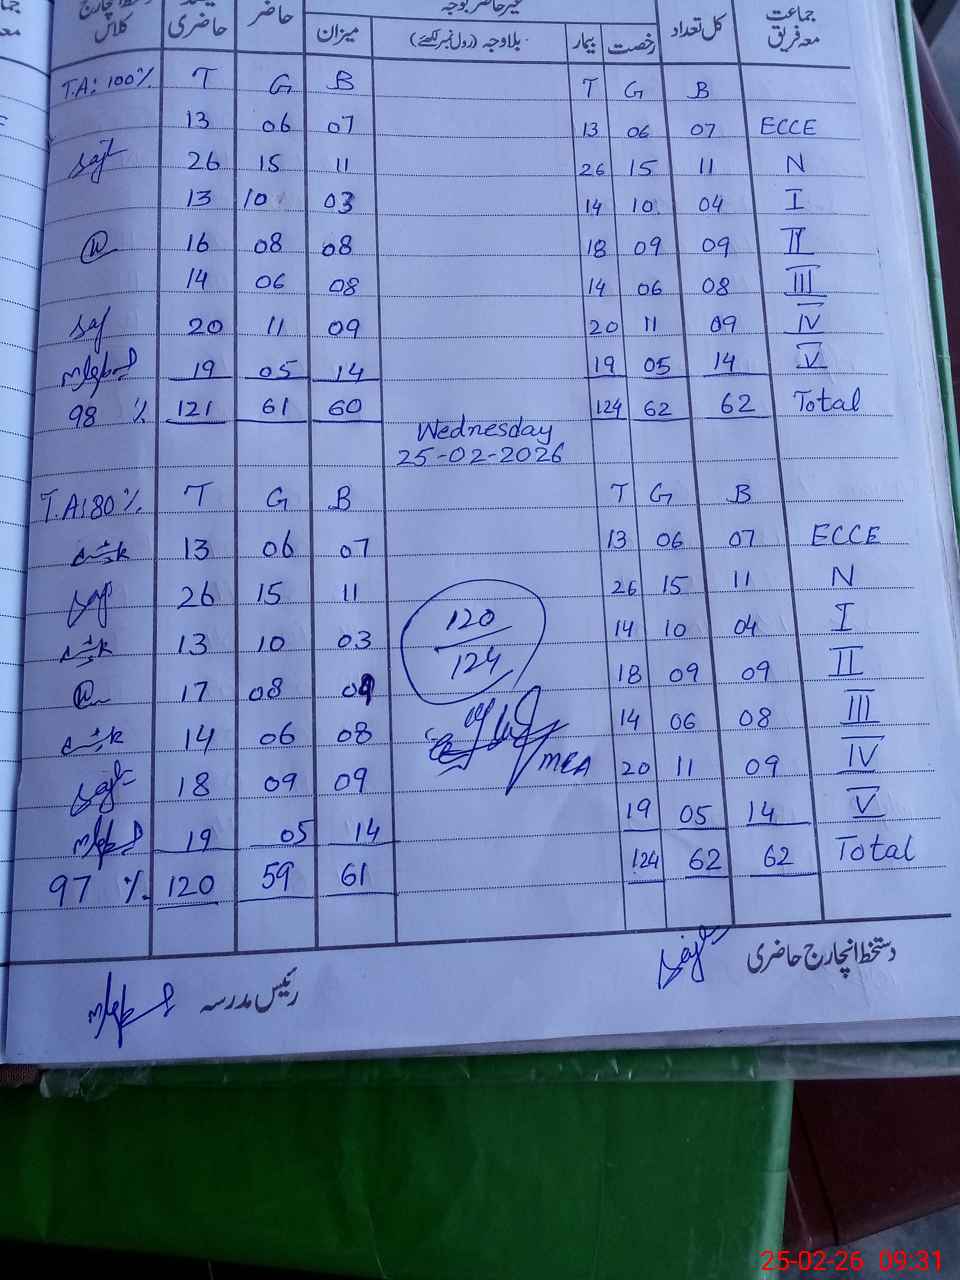 جماعت معہ فریق کل تعداد رخصت بیمار بلاوجہ (رول نمبر لکھئے) میزان حاضر حاضری کلاس
غیر حاضر بوجہ
T.A: 100% T G B T G B
13 06 07 13 06 07 ECCE
26 15 11 26 15 11 N
13 10 03 14 10 04 I
16 08 08 18 09 09 II
14 06 08 14 06 08 III
20 11 09 20 11 09 IV
19 05 14 19 05 14 V
98 % 121 61 60 124 62 62 Total
Wednesday
25-02-2026
T.A: 80% T G B T G B
13 06 07 13 06 07 ECCE
26 15 11 26 15 11 N
13 10 03 14 10 04 I
120
124
17 08 09 18 09 09 II
14 06 08 14 06 08 III
MEA
18 09 09 20 11 09 IV
19 05 14 19 05 14 V
97 % 120 59 61 124 62 62 Total
دستخط انچارج حاضری
رئیس مدرسہ
25-02-26 09:31